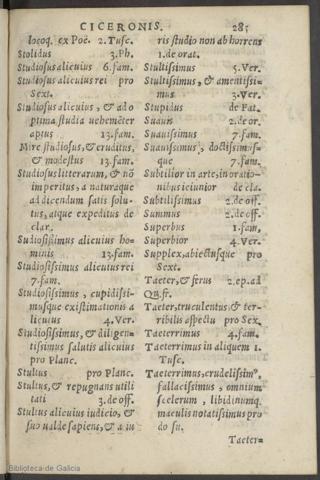 CICERONIS. 285
locoq. ex Poë. 2. Tusc.
Stolidus 3. Ph.
Studiosus alicuius 6. fam.
Studiosus alicuius rei pro
Sext.
Studiosus alicuius, & ad o
ptima studia uehemēter
aptus 13. fam.
Mire studiosus, & eruditus,
& modestus 13. fam.
Studiosus litterarum, & nō
imperitus, a naturaque
ad dicendum satis solu-
tus, atque expeditus de
clar.
Sudiosissimus alicuius ho-
minis 13. fam.
Studiosissimus alicuius rei
7. fam.
Studiosissimus, cupidissi-
musque existimationis a
licuius 4. Ver.
Studiosissimus, & diligen-
tissimus salutis alicuius
pro Planc.
Stultus pro Planc.
Stultus, & repugnans utili
tati 3. de off.
Stultus alicuius iudicio, &
suo ualde sapiens, & a iu
ris studio non abhorrens
1. de orat.
Stultissimus 5. Ver.
Stultissimus, & amentissi-
mus 3. Ver.
Stupidus de Fat.
Suauis 2. de or.
Suauissimus 7. fam.
Suauissimus, doctissimus-
que 7. fam.
Subtilior in arte, in oratio-
nibus ieiunior de cla.
Subtilissimus 2. de off.
Summus 2. de off.
Superbus 1. fam.
Superbior 4. Ver.
Supplex, abiectusque pro
Sext.
Taeter, & ferus 2. ep. ad
Qu. fr.
Taeter, truculentus, & ter-
ribilis aspectu pro Sex.
Taeterrimus 4. fam.
Taeterrimus in aliquem 1.
Tusc.
Taeterrimus, crudelissim9,
fallacissimus, omnium
scelerum, libidinumq.
maculis notatissimus pro
do su.
Taeter=
Biblioteca de Galicia